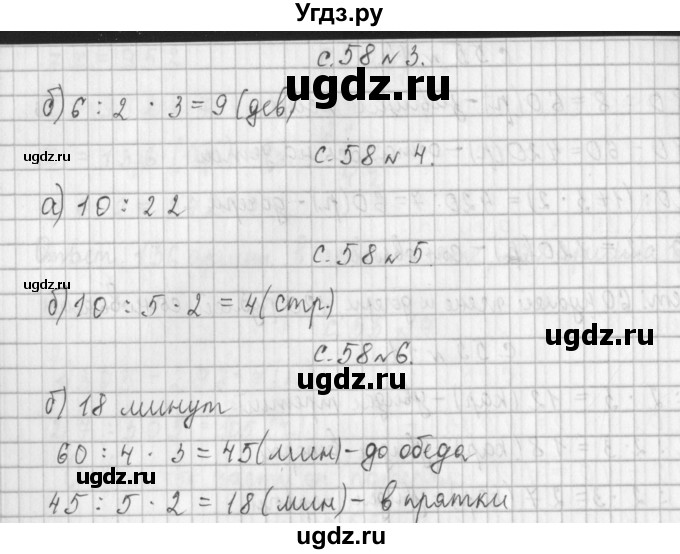 Угдз.ру
с.58 №3.
б) 6 : 2 · 3 = 9 (дев)
ugdz.ru
ugdz.ru
с.58 №4.
ugdz.ru
а) 10 : 2 2
с.58 №5.
ugdz.ru
ugdz.ru
б) 10 : 5 · 2 = 4 (стр.)
ugdz.ru
с.58 №6.
ugdz.ru
б) 18 минут
60 : 4 · 3 = 45 (мин) - до обеда
ugdz.ru
45 : 5 · 2 = 18 (мин) - в прятки
ugdz.ru